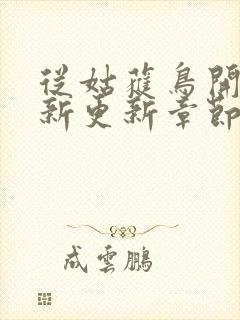 從姑蕥鳥開
新更新章節
成雲鵬